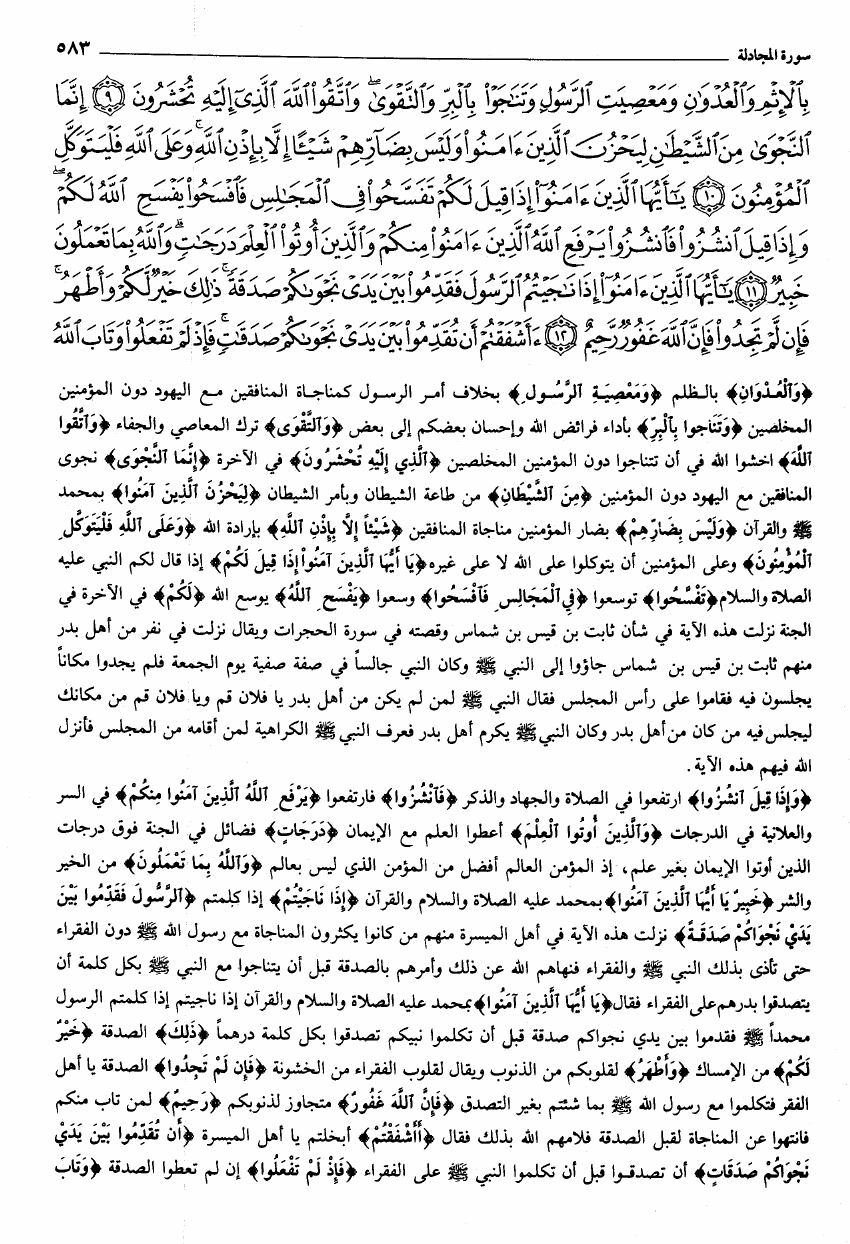 سورة المجادلة ٥٨٣
بِٱلْإِثْمِ وَٱلْعُدْوَٰنِ وَمَعْصِيَتِ ٱلرَّسُولِ وَتَنَٰجَوْا۟ بِٱلْبِرِّ وَٱلتَّقْوَىٰ ۖ وَٱتَّقُوا۟ ٱللَّهَ ٱلَّذِىٓ إِلَيْهِ تُحْشَرُونَ ۝٩ إِنَّمَا
ٱلنَّجْوَىٰ مِنَ ٱلشَّيْطَٰنِ لِيَحْزُنَ ٱلَّذِينَ ءَامَنُوا۟ وَلَيْسَ بِضَآرِّهِمْ شَيْـًٔا إِلَّا بِإِذْنِ ٱللَّهِ ۚ وَعَلَى ٱللَّهِ فَلْيَتَوَكَّلِ
ٱلْمُؤْمِنُونَ ۝١٠ يَٰٓأَيُّهَا ٱلَّذِينَ ءَامَنُوٓا۟ إِذَا قِيلَ لَكُمْ تَفَسَّحُوا۟ فِى ٱلْمَجَٰلِسِ فَٱفْسَحُوا۟ يَفْسَحِ ٱللَّهُ لَكُمْ ۖ
وَإِذَا قِيلَ ٱنشُزُوا۟ فَٱنشُزُوا۟ يَرْفَعِ ٱللَّهُ ٱلَّذِينَ ءَامَنُوا۟ مِنكُمْ وَٱلَّذِينَ أُوتُوا۟ ٱلْعِلْمَ دَرَجَٰتٍ ۚ وَٱللَّهُ بِمَا تَعْمَلُونَ
خَبِيرٌ ۝١١ يَٰٓأَيُّهَا ٱلَّذِينَ ءَامَنُوٓا۟ إِذَا نَٰجَيْتُمُ ٱلرَّسُولَ فَقَدِّمُوا۟ بَيْنَ يَدَىْ نَجْوَىٰكُمْ صَدَقَةً ۚ ذَٰلِكَ خَيْرٌ لَّكُمْ وَأَطْهَرُ ۚ
فَإِن لَّمْ تَجِدُوا۟ فَإِنَّ ٱللَّهَ غَفُورٌ رَّحِيمٌ ۝١٢ ءَأَشْفَقْتُمْ أَن تُقَدِّمُوا۟ بَيْنَ يَدَىْ نَجْوَىٰكُمْ صَدَقَٰتٍ ۚ فَإِذْ لَمْ تَفْعَلُوا۟ وَتَابَ ٱللَّهُ
﴿وَٱلْعُدْوَانِ﴾ بالظلم ﴿وَمَعْصِيَةِ ٱلرَّسُولِ﴾ بخلاف أمر الرسول كمناجاة المنافقين مع اليهود دون المؤمنين
المخلصين ﴿وَتَنَاجوا بِٱلْبِرِّ﴾ بأداء فرائض الله وإحسان بعضكم إلى بعض ﴿وَٱلتَّقْوَى﴾ ترك المعاصي والجفاء ﴿وَٱتَّقُوا
ٱللَّهَ﴾ اخشوا الله في أن تتناجوا دون المؤمنين المخلصين ﴿ٱلَّذِي إِلَيْهِ تُحْشَرُونَ﴾ في الآخرة ﴿إِنَّمَا ٱلنَّجْوَى﴾ نجوى
المنافقين مع اليهود دون المؤمنين ﴿مِنَ ٱلشَّيْطَانِ﴾ من طاعة الشيطان وبأمر الشيطان ﴿لِيَحْزُنَ ٱلَّذِينَ آمَنُوا﴾ بمحمد
ﷺ والقرآن ﴿وَلَيْسَ بِضَارِّهِمْ﴾ بضار المؤمنين مناجاة المنافقين ﴿شَيْئاً إِلَّا بِإِذْنِ ٱللَّهِ﴾ بإرادة الله ﴿وَعَلَى ٱللَّهِ فَلْيَتَوَكَّلِ
ٱلْمُؤْمِنُونَ﴾ وعلى المؤمنين أن يتوكلوا على الله لا على غيره ﴿يَا أَيُّهَا ٱلَّذِينَ آمَنُوا إِذَا قِيلَ لَكُمْ﴾ إذا قال لكم النبي عليه
الصلاة والسلام ﴿تَفَسَّحُوا﴾ توسعوا ﴿فِي ٱلْمَجَالِسِ فَٱفْسَحُوا﴾ وسعوا ﴿يَفْسَحِ ٱللَّهُ﴾ يوسع الله ﴿لَكُمْ﴾ في الآخرة في
الجنة نزلت هذه الآية في شأن ثابت بن قيس بن شماس وقصته في سورة الحجرات ويقال نزلت في نفر من أهل بدر
منهم ثابت بن قيس بن شماس جاؤوا إلى النبي ﷺ وكان النبي جالساً في صفة صفية يوم الجمعة فلم يجدوا مكاناً
يجلسون فيه فقاموا على رأس المجلس فقال النبي ﷺ لمن لم يكن من أهل بدر يا فلان قم ويا فلان قم من مكانك
ليجلس فيه من كان من أهل بدر وكان النبي ﷺ يكرم أهل بدر فعرف النبي ﷺ الكراهية لمن أقامه من المجلس فأنزل
الله فيهم هذه الآية.
﴿وَإِذَا قِيلَ ٱنشُزُوا﴾ ارتفعوا في الصلاة والجهاد والذكر ﴿فَٱنْشُزُوا﴾ فارتفعوا ﴿يَرْفَعِ ٱللَّهُ ٱلَّذِينَ آمَنُوا مِنكُمْ﴾ في السر
والعلانية في الدرجات ﴿وَٱلَّذِينَ أُوتُوا ٱلْعِلْمَ﴾ أعطوا العلم مع الإيمان ﴿دَرَجَاتٍ﴾ فضائل في الجنة فوق درجات
الذين أوتوا الإيمان بغير علم، إذ المؤمن العالم أفضل من المؤمن الذي ليس بعالم ﴿وَٱللَّهُ بِمَا تَعْمَلُونَ﴾ من الخير
والشر ﴿خَبِيرٌ يَا أَيُّهَا ٱلَّذِينَ آمَنُوا﴾ بمحمد عليه الصلاة والسلام والقرآن ﴿إِذَا نَاجَيْتُمْ﴾ إذا كلمتم ﴿ٱلرَّسُولَ فَقَدِّمُوا بَيْنَ
يَدَيْ نَجْوَاكُمْ صَدَقَةً﴾ نزلت هذه الآية في أهل الميسرة منهم من كانوا يكثرون المناجاة مع رسول الله ﷺ دون الفقراء
حتى تأذى بذلك النبي ﷺ والفقراء فنهاهم الله عن ذلك وأمرهم بالصدقة قبل أن يتناجوا مع النبي ﷺ بكل كلمة أن
يتصدقوا بدرهم على الفقراء فقال ﴿يَا أَيُّهَا ٱلَّذِينَ آمَنُوا﴾ بمحمد عليه الصلاة والسلام والقرآن إذا ناجيتم إذا كلمتم الرسول
محمداً ﷺ فقدموا بين يدي نجواكم صدقة قبل أن تكلموا نبيكم تصدقوا بكل كلمة درهماً ﴿ذَلِكَ﴾ الصدقة ﴿خَيْرٌ
لَكُمْ﴾ من الإمساك ﴿وَأَطْهَرُ﴾ لقلوبكم من الذنوب ويقال لقلوب الفقراء من الخشونة ﴿فَإِن لَمْ تَجِدُوا﴾ الصدقة يا أهل
الفقر فتكلموا مع رسول الله ﷺ بما شئتم بغير التصدق ﴿فَإِنَّ ٱللَّهَ غَفُورٌ﴾ متجاوز لذنوبكم ﴿رَحِيمٌ﴾ لمن تاب منكم
فانتهوا عن المناجاة لقبل الصدقة فلامهم الله بذلك فقال ﴿أَأَشْفَقْتُمْ﴾ أبخلتم يا أهل الميسرة ﴿أَن تُقَدِّمُوا بَيْنَ يَدَيْ
نَجْوَاكُمْ صَدَقَاتٍ﴾ أن تصدقوا قبل أن تكلموا النبي ﷺ على الفقراء ﴿فَإِذْ لَمْ تَفْعَلُوا﴾ إن لم تعطوا الصدقة ﴿وَتَابَ